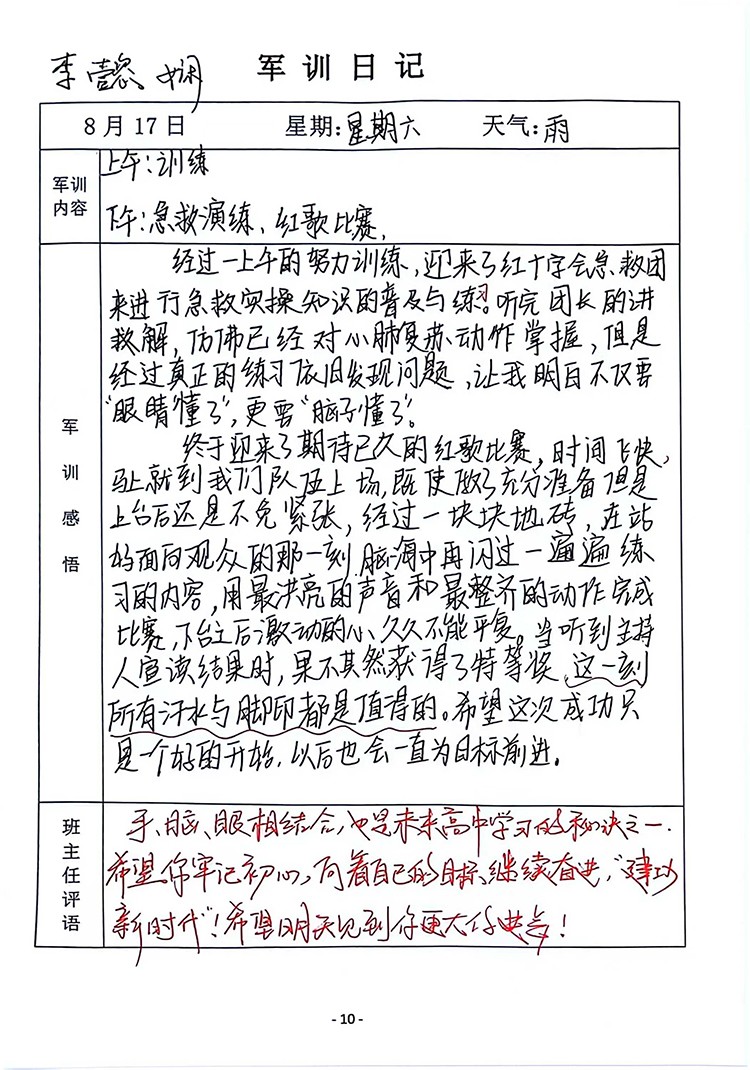 李懿娴 军训日记
8月17日 星期:星期六 天气:雨
军训内容
上午:训练
下午:急救演练、红歌比赛,
军训感悟
经过一上午的努力训练,迎来了红十字会急救团
来进行急救实操知识的普及与练习。听完团长的讲
救解,仿佛已经对心肺复苏动作掌握,但是
经过真正的练习依旧发现问题,让我明白不仅要
“眼睛懂了”,更要“脑子懂了”。
终于迎来了期待已久的红歌比赛,时间飞快,
马上就到我们队伍上场,既使做了充分准备但是
上台后还是不免紧张,经过一块块地砖,在站
的面向观众的那一刻脑海中再闪过一遍遍练
习的内容,用最洪亮的声音和最整齐的动作完成
比赛,下台之后激动的心久久不能平复。当听到主持
人宣读结果时,果不其然获得了特等奖,这一刻
所有汗水与脚印都是值得的。希望这次成功只
是一个好的开始,以后也会一直为目标前进。
班主任评语
手、脑、眼相结合,也是未来高中学习的秘诀之一.
希望你牢记初心,向着自己的目标继续奋进,“建功
新时代”!希望明天见到你更大
- 10 -